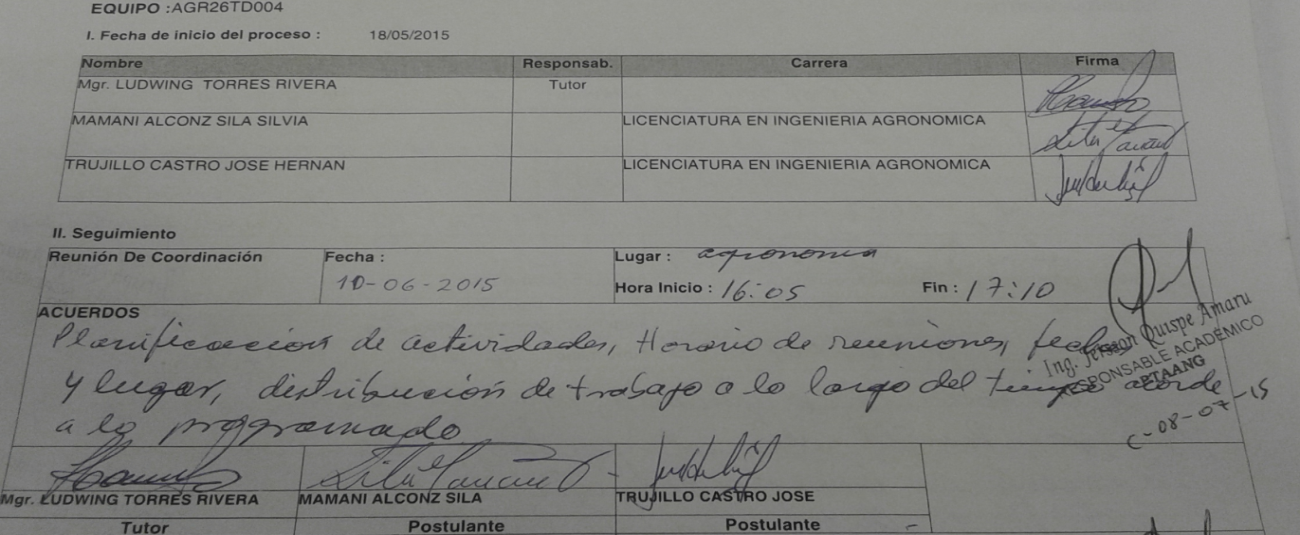 EQUIPO :AGR26TD004
I. Fecha de inicio del proceso : 18/05/2015
Nombre Responsab. Carrera Firma
Mgr. LUDWING TORRES RIVERA Tutor
MAMANI ALCONZ SILA SILVIA LICENCIATURA EN INGENIERIA AGRONOMICA
TRUJILLO CASTRO JOSE HERNAN LICENCIATURA EN INGENIERIA AGRONOMICA
II. Seguimiento
Reunión De Coordinación Fecha : Lugar : agronomia
10-06-2015 Hora Inicio : 16:05 Fin : 17:10
ACUERDOS
Planificación de actividades, Horario de reuniones, fechas
y lugar, distribución de trabajo a lo largo del tiempo acorde
a lo programado
Ing. Jerson Quispe Amaru
RESPONSABLE ACADÉMICO
PTAANG
C-08-07-15
Mgr. LUDWING TORRES RIVERA MAMANI ALCONZ SILA TRUJILLO CASTRO JOSE
Tutor Postulante Postulante